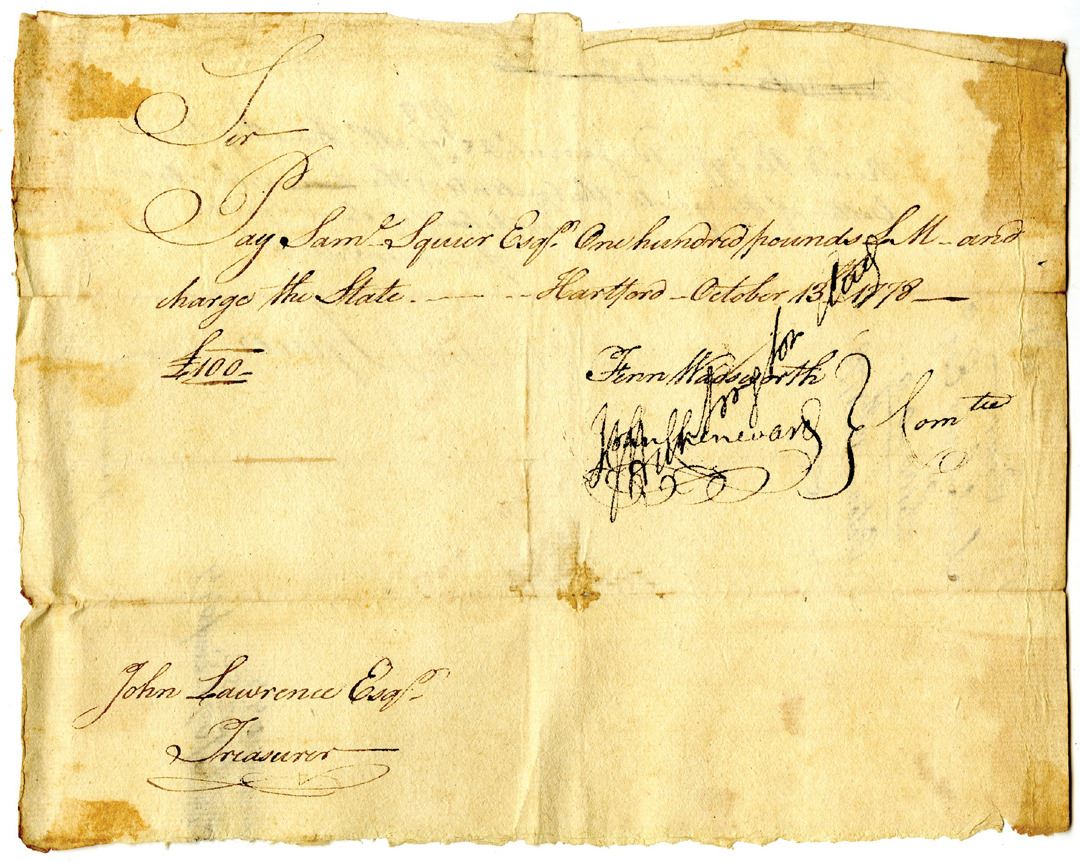 Sir
Pay Sam.l Squier Esq.r One hundred pounds L M – and
charge the State. — – – Hartford – October 13 1778 —
£100–
Fenn Wadsworth
John Chenevard } Com.tee
John Lawrence Esq.r
Treasurer